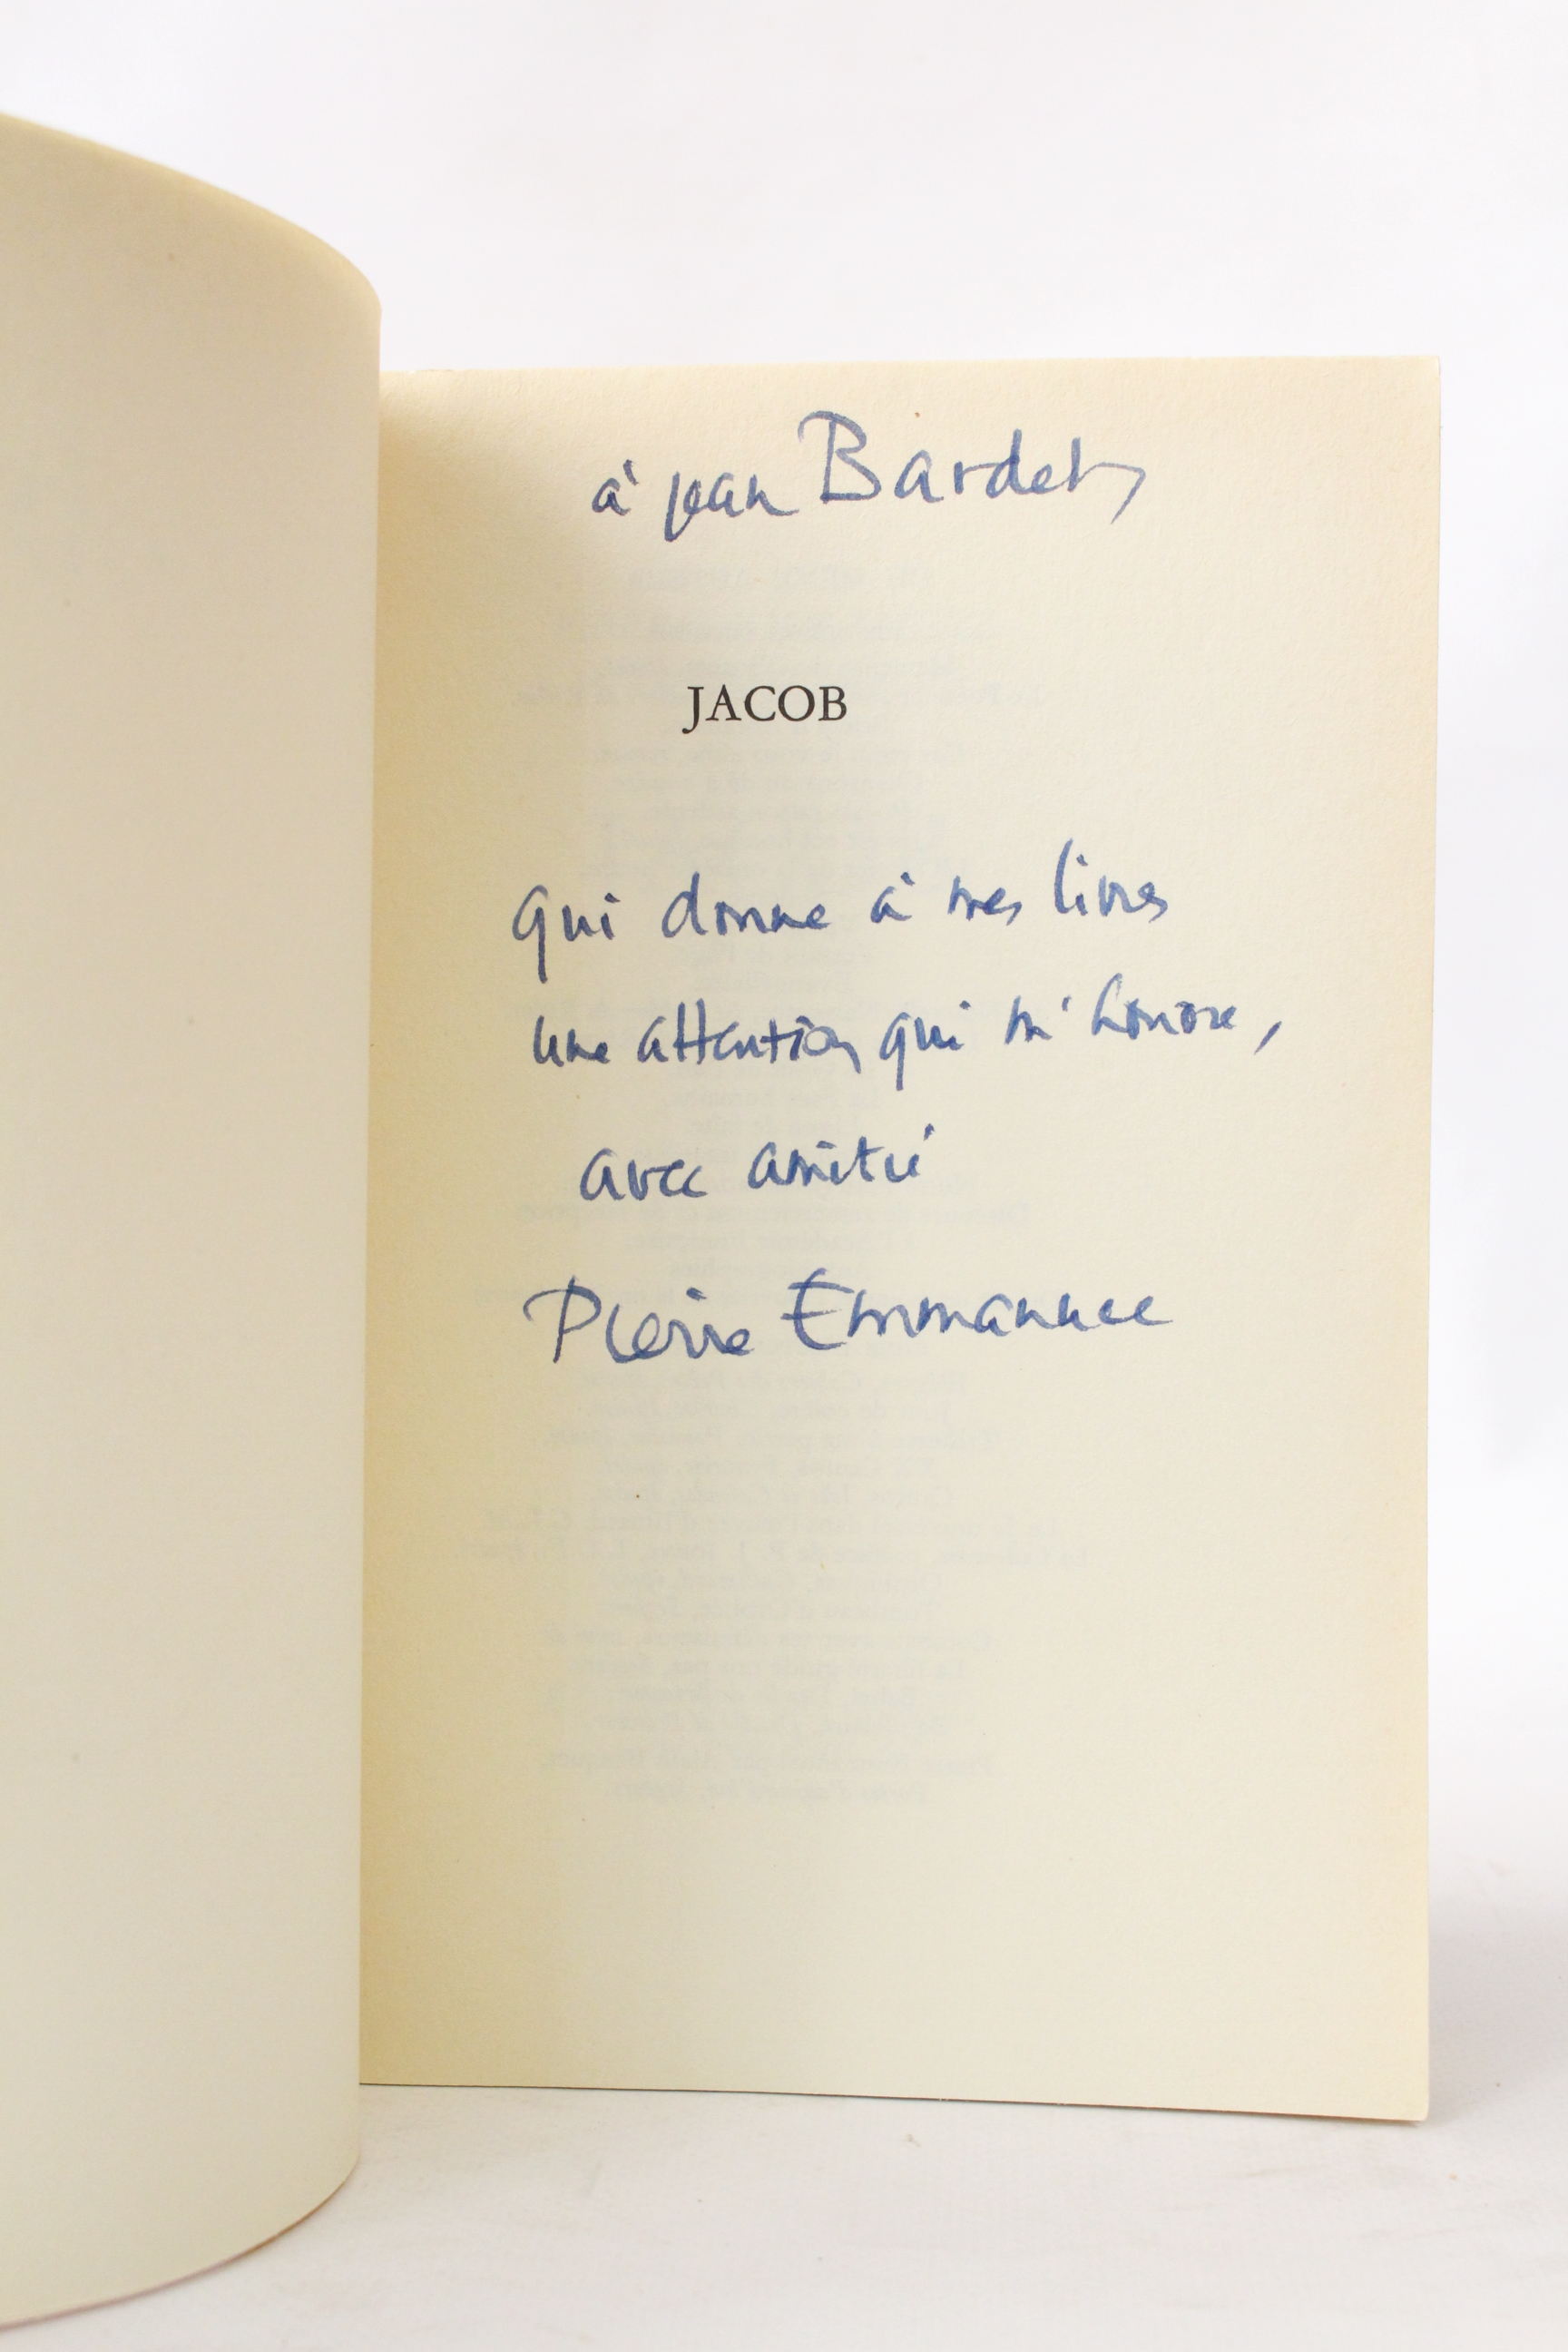 à Jean Bardet,
JACOB
qui donne à mes livres
une attention qui m'honore,
avec amitié
Pierre Emmanuel